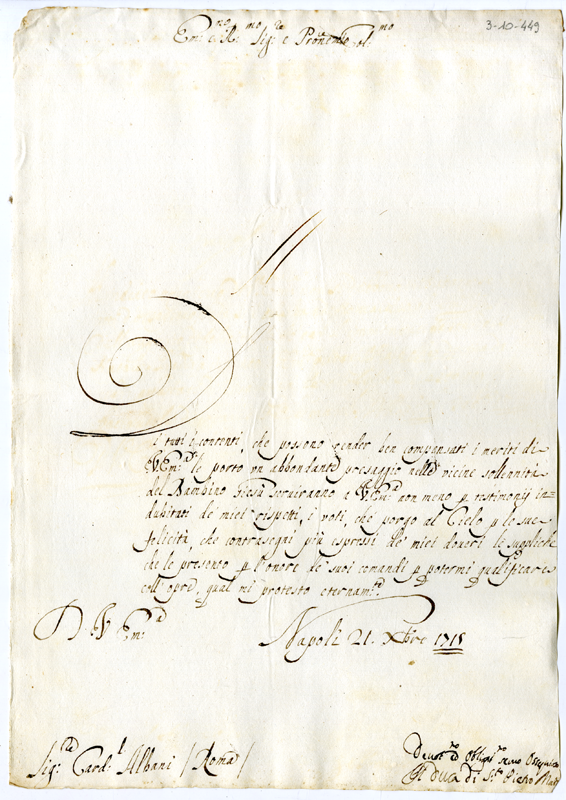 3-10-449
Em.no e R.mo Sig.re e Pron̄e Col.mo
Di tutti i contenti, che possono render ben compensati i meriti di
V. Em.a le porto un abbondante presaggio nelle vicine sollennità
del Bambino Giesù. Serviranno a V. Em.a non meno p testimonij in=
dubitati de' miei rispetti, i voti, che porgo al Cielo p le sue
felicità, che contrasegni più espressi de' miei doveri le suppliche
che le presento p l'onore de' suoi comandi p potermi qualificare
coll'opre, qual mi protesto eternam.te
D V. Em.a
Napoli 21. Xbre 1715
Sig.re Card.l Albani / Roma /
Devot.mo ed Obligat.mo Servo Ossequioso
Il Duca di S.to Pietro